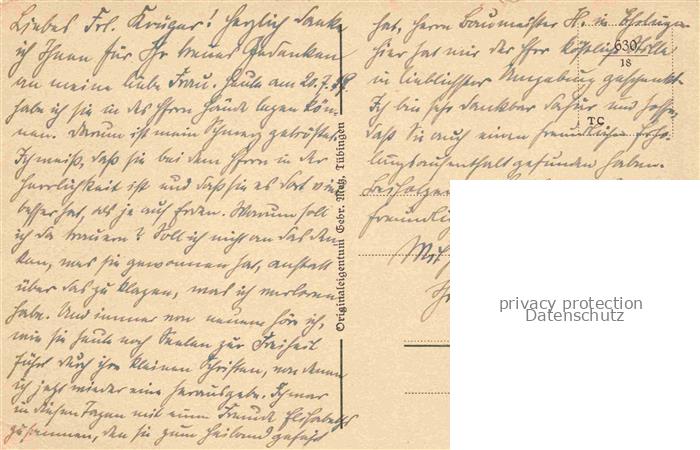 Liebes Frl. Krüger! Herzlich danke
ich Ihnen für Ihr treues Gedenken
an meine liebe Frau. Heute am 20.7.
habe ich sie in des Herrn Hände legen kön-
nen. Darum ist mein Schmerz getröstet.
Ich weiß, daß sie bei dem Herrn in der
Herrlichkeit ist und daß sie es dort viel
besser hat, als je auf Erden. Warum soll
ich da trauern? Soll ich nicht an das den-
ken, was sie gewonnen hat, anstatt
über das zu klagen, was ich verloren
habe. Und immer von neuem höre ich,
wie sie heute noch Seelen zur Freiheit
führt durch ihre kleinen Schriften, von denen
ich jetzt wieder eine herausgebe. Ich war
in diesen Tagen mit einer Freundin Elisabeths
zusammen, den sie zum Heiland geführt
hat, Herrn Baumeister H. in
hier hat mir der Herr köstliche Stille
in lieblichster Umgebung geschenkt.
Ich bin sehr dankbar dafür und hoffe,
daß Sie auch einen freundlichen Erho-
lungsaufenthalt gefunden haben.
Mit
Originaleigentum Gebr. Metz, Tübingen
630
18
TC
privacy protection
Datenschutz